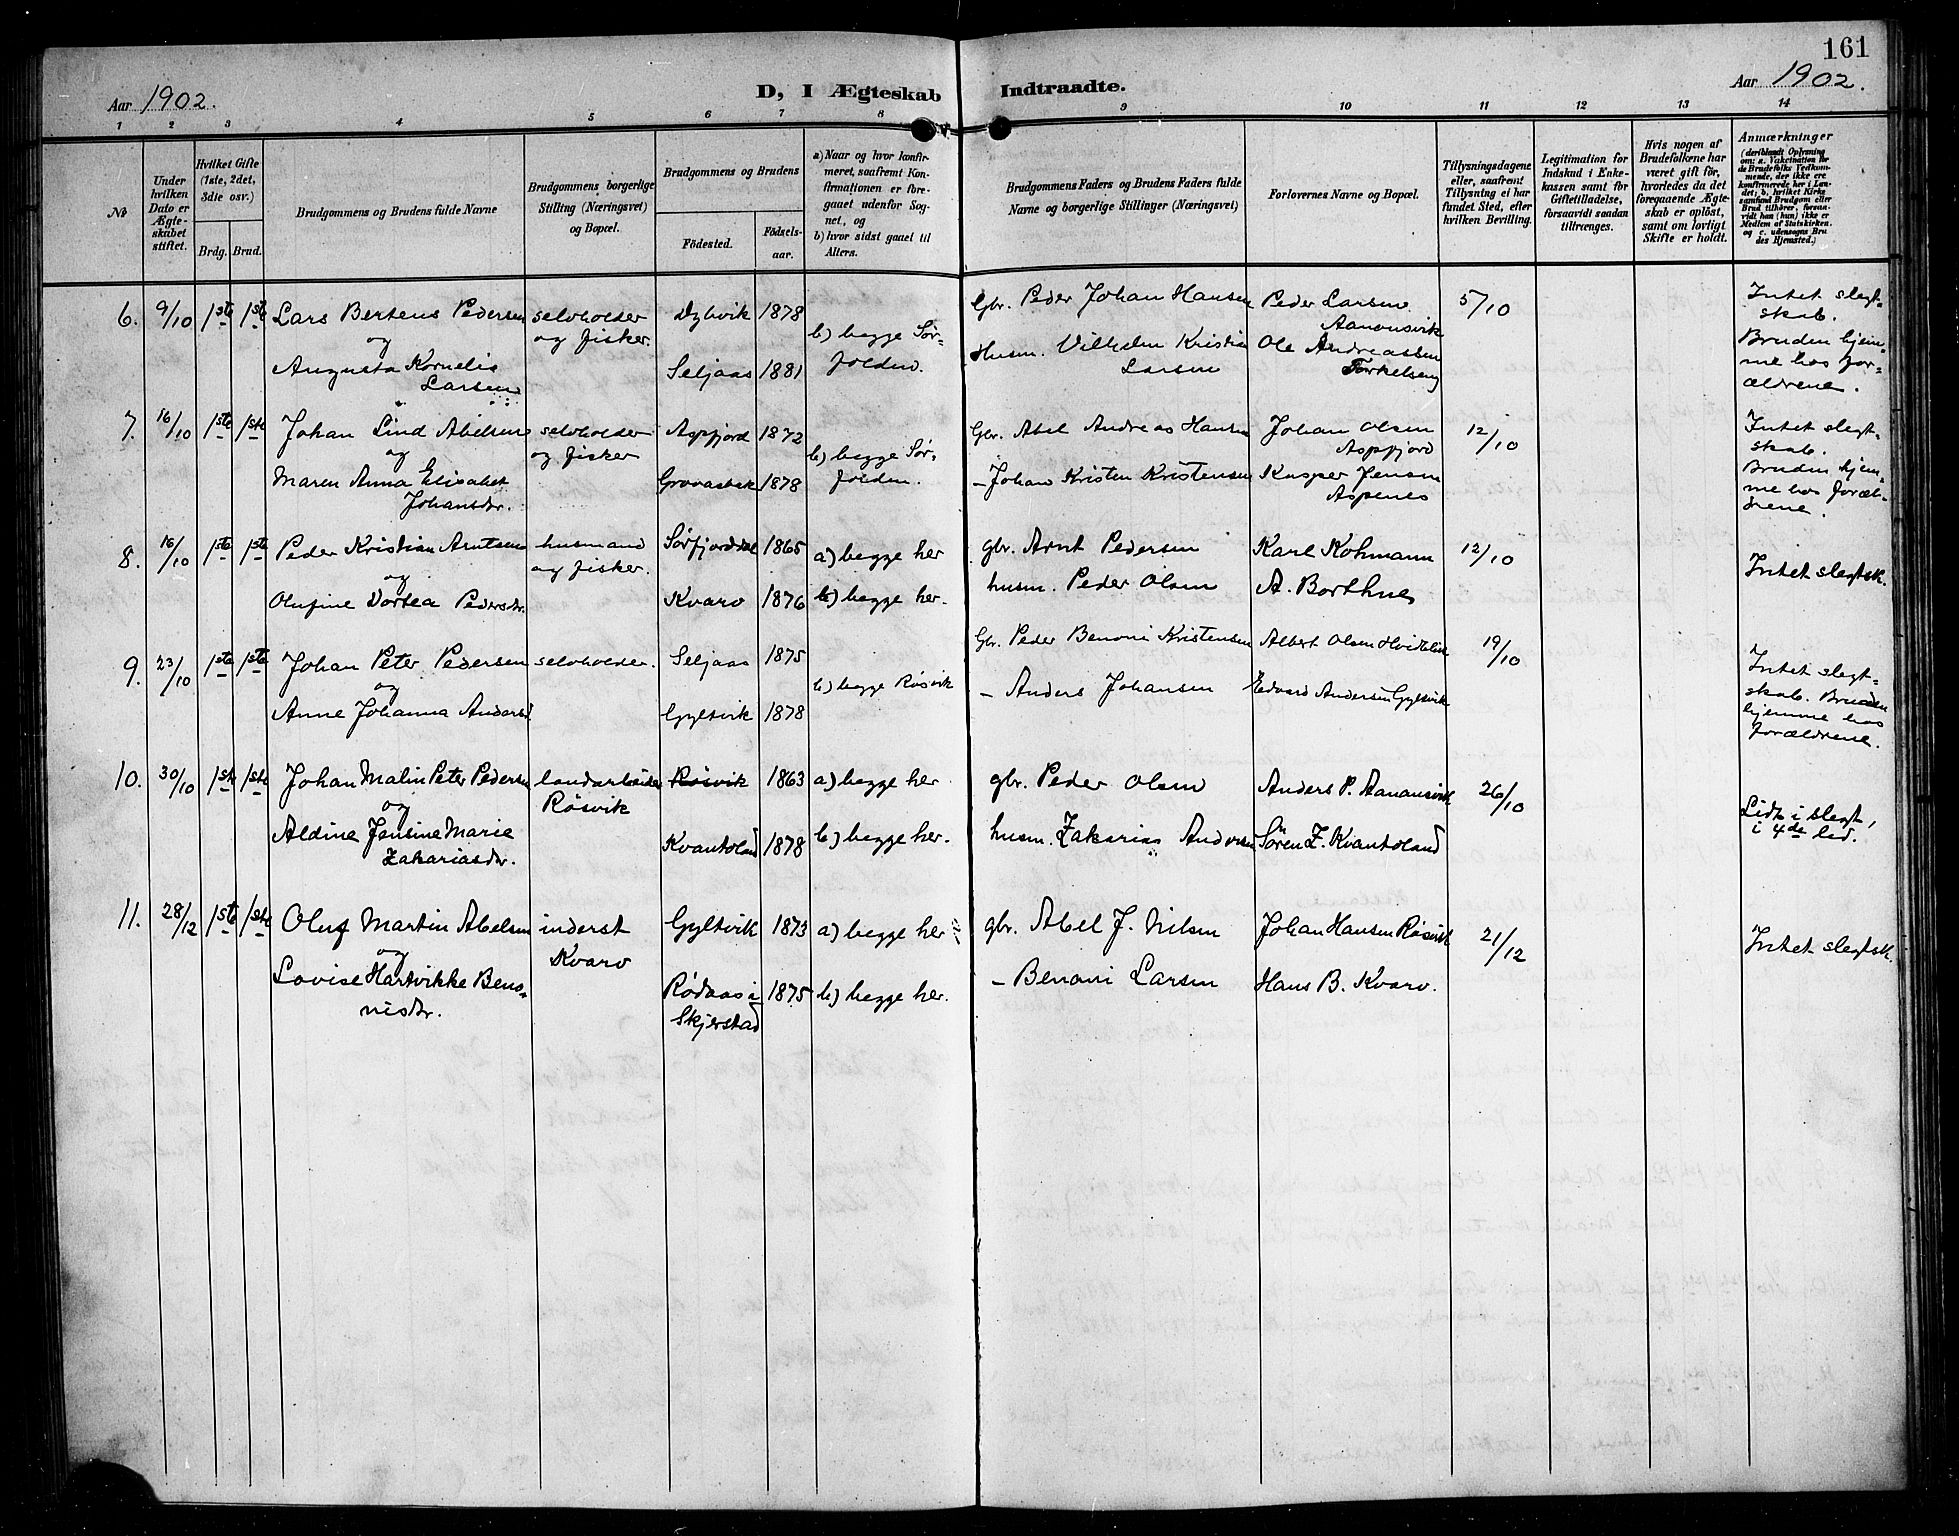 161
Aar 1902.
D, I Ægteskab Indtraadte.
Aar 1902.
1 2 3 4 5 6 7 8 9 10 11 12 13 14
No
Under hvilken Dato er Ægteskabet stiftet.
Hvilket Gifte (1ste, 2det, 3die osv.)
Brdg. Brud.
Brudgommens og Brudens fulde Navne
Brudgommens borgerlige Stilling (Næringsvei) og Bopæl.
Brudgommens og Brudens
Födested.
Födsels-aar.
a) Naar og hvor konfirmeret, saafremt Konfirmationen er foregaaet udenfor Sognet, og
b) hvor sidst gaaet til Alters.
Brudgommens Faders og Brudens Faders fulde Navne og borgerlige Stillinger (Næringsvei)
Forlovernes Navne og Bopæl.
Tillysningsdagene eller, saafremt Tillysning ei har fundet Sted, efter hvilken Bevilling.
Legitimation for Indskud i Enkekassen samt for Giftetilladelse, forsaavidt saadan tiltrænges.
Hvis nogen af Brudefolkene har været gift før, hvorledes da det foregaaende Ægteskab er oplöst, samt om lovligt Skifte er holdt.
Anmærkninger
(deriblandt Oplysning om: a. Vakcination for de Brudefolks Vedkommende, der ikke ere konfirmerede her i Landet; b, hvilket Kirkesamfund Brudgom eller Brud tilhörer, forsaavidt han (hun) ikke er Medlem af Statskirken, og c. udensogns Brudes Hjemsted.)
6. 9/10 1ste 1ste Lars Bertens Pedersen selvholder Dybvik 1878 Gbr. Peder Johan Hansen Peder Larsen 5/10 Intet slegt=
og og fisker. b) begge Sør= Aanonsvik skab.
Augusta Kornelia Seljaas 1881 folden. Husm. Vilhelm Kristia Ole Andreassen Bruden hjem=
Larsen Larsen Torkelseng me hos for=
ældrene.
7. 16/10 1ste 1ste Johan Lind Abelsen selvholder Aspfjord 1872 Gbr. Abel Andreas Hansen Johan Olsen 12/10 Intet slegt=
og og fisker b) begge Sør= Aspfjord skab.
Maren Anna Elisabet 1878 folden. – Johan Kristen Kristensen Kasper Jensen Bruden hjem=
Johansdr. Aspenes me hos foræl=
drene.
8. 16/10 1ste 1ste Peder Kristian Arntsen husmand Sørfjorddal 1865 a) begge her gbr. Arnt Pedersen Karl Kohmann 12/10
og og fisker. Intet slegtsk.
Olufine Dortea Pedersdr. Kvarv 1876 b) begge her. husm. Peder Olsen A. Borthne
9. 23/10 1ste 1ste Johan Peter Pedersen selvholder. Seljaas 1875 Gbr. Peder Benoni Kristensen Albert Olsen 19/10 Intet slegt=
og b) begge Røsvik skab. Bruden
Anne Johanna Andersd. Gyltvik 1878 – Anders Johansen Edvard Andersen Gyltvik hjemme hos
forældrene.
10. 30/10 1ste 1ste Johan Malin Peter Pedersen landarbeider Røsvik 1863 a) begge her gbr. Peder Olsen Anders P. Aanansvik 26/10
og Røsvik Lidt i slegt,
Aldine Jensine Marie Kvantoland 1878 b) begge her. husm. Zakarias Andersen Søren Z. Kvantoland i 4de led.
Zakariasdr.
11. 28/12 1ste 1ste Oluf Martin Abelsen inderst Gyltvik 1873 a) begge her gbr. Abel J. Nilsen Johan Hansen Røsvik 21/12
og Kvarv Intet slegtsk.
Lovise Hartvikke Beno= Rødaas i 1875 b) begge her. – Benoni Larsen Hans B. Kvarv.
nisdr. Skjerstad